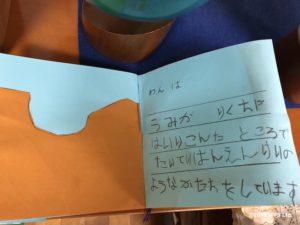 わんは
うみが りくちに
はいりこんだ ところで
たいていはんえんけいの
ようなかたちをしています